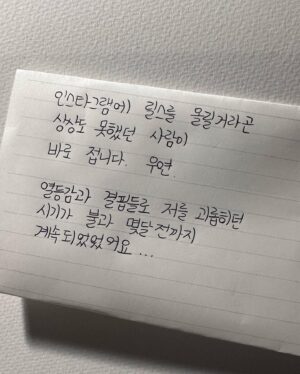 인스타그램에 릴스를 올릴거라곤
상상도 못했던 사람이
바로 접니다. 우연.
열등감과 결핍들로 저를 괴롭히던
시기가 불과 몇달전까지
계속되었었어요...